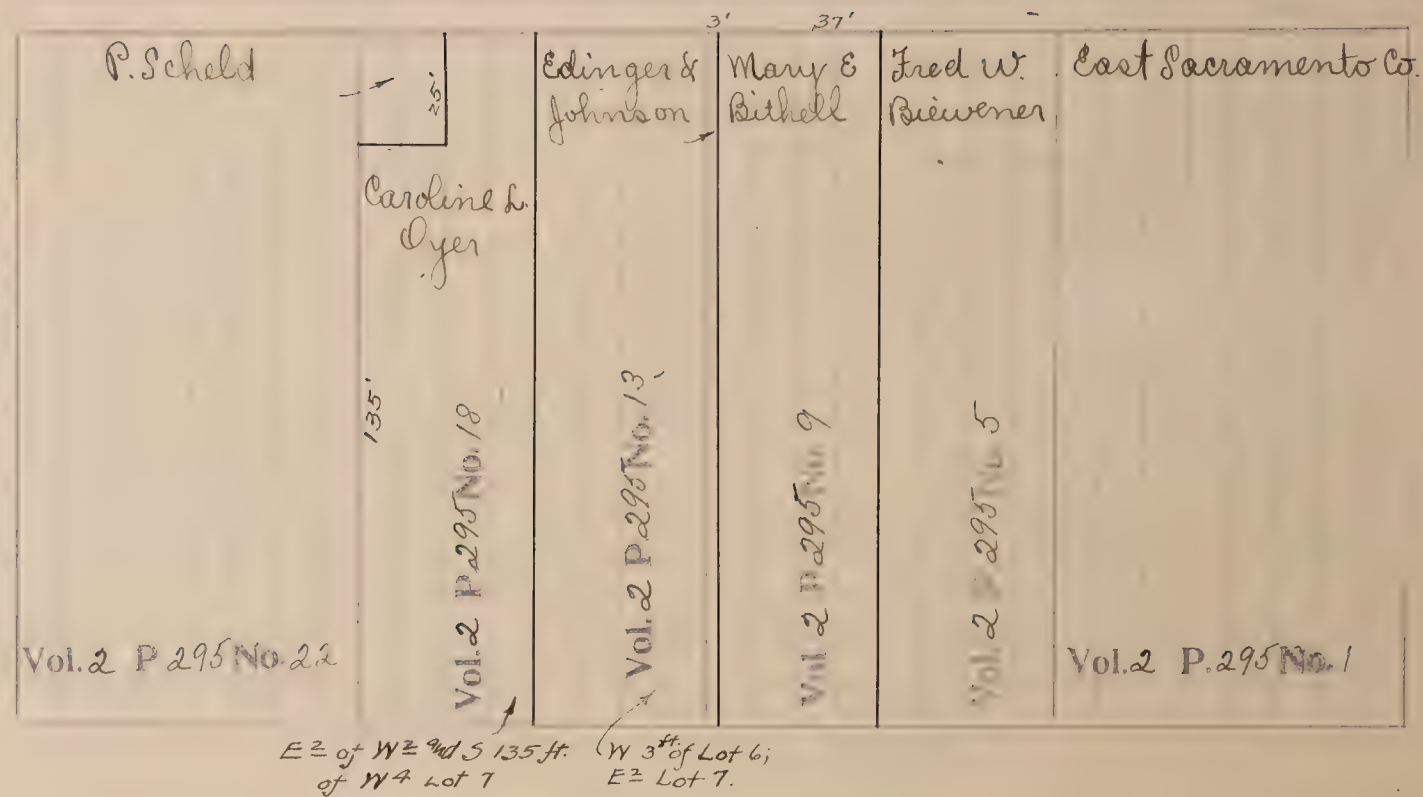 3' 37'
P. Scheld
25'
Caroline L.
Oyer
Edinger &
Johnson
Mary E
Bithell
Fred W.
Biewener
East Sacramento Co.
135'
Vol. 2 P 295 No. 22
Vol. 2 P 295 No. 18
Vol. 2 P 295 No. 13
Vol. 2 P 295 No. 9
Vol. 2 P 295 No. 5
Vol. 2 P. 295 No. 1
E 2 of W 2 and S 135 ft.
of W 4 Lot 7
W 3 ft. of Lot 6;
E 2 Lot 7.